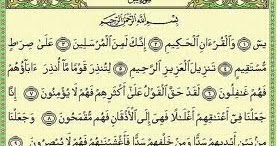 بِسْمِ اللَّهِ الرَّحْمَٰنِ الرَّحِيمِ
يسٓ ١ وَالْقُرْءَانِ الْحَكِيمِ ٢ إِنَّكَ لَمِنَ الْمُرْسَلِينَ ٣ عَلَىٰ صِرَاطٍ
مُّسْتَقِيمٍ ٤ تَنزِيلَ الْعَزِيزِ الرَّحِيمِ ٥ لِتُنذِرَ قَوْمًا مَّا أُنذِرَ ءَابَاؤُهُمْ
فَهُمْ غَٰفِلُونَ ٦ لَقَدْ حَقَّ الْقَوْلُ عَلَىٰ أَكْثَرِهِمْ فَهُمْ لَا يُؤْمِنُونَ ٧ إِنَّا
جَعَلْنَا فِي أَعْنَٰقِهِمْ أَغْلَٰلًا فَهِيَ إِلَى الْأَذْقَانِ فَهُم مُّقْمَحُونَ ٨ وَجَعَلْنَا
مِن بَيْنِ أَيْدِيهِمْ سَدًّا وَمِنْ خَلْفِهِمْ سَدًّا فَأَغْشَيْنَٰهُمْ فَهُمْ لَا يُبْصِرُونَ ٩